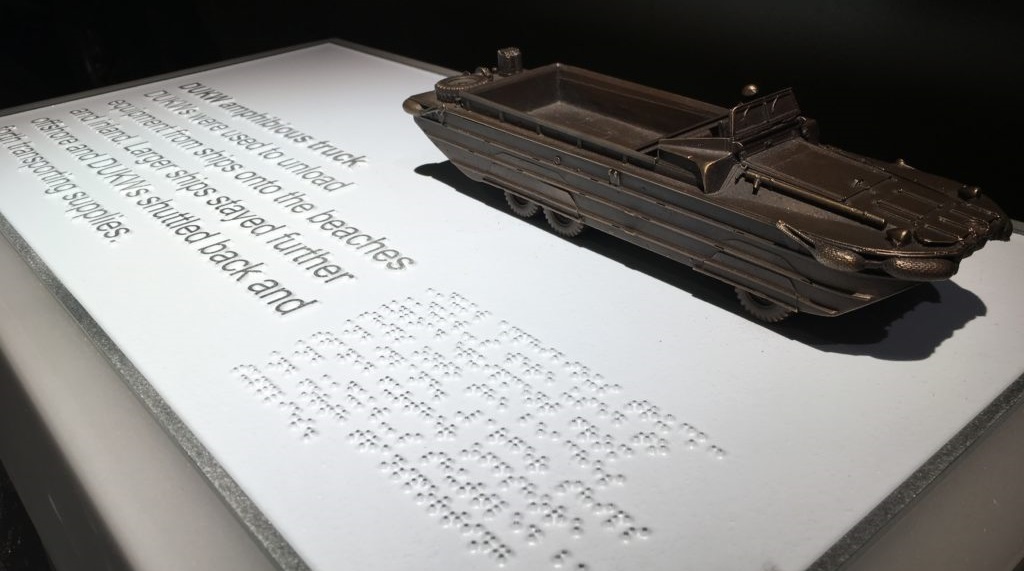 DUKW amphibious truck
DUKW's were used to unload
equipment from ships onto the beaches
and inland. Larger ships stayed further
offshore and DUKW's shuttled back and
forth transporting supplies.